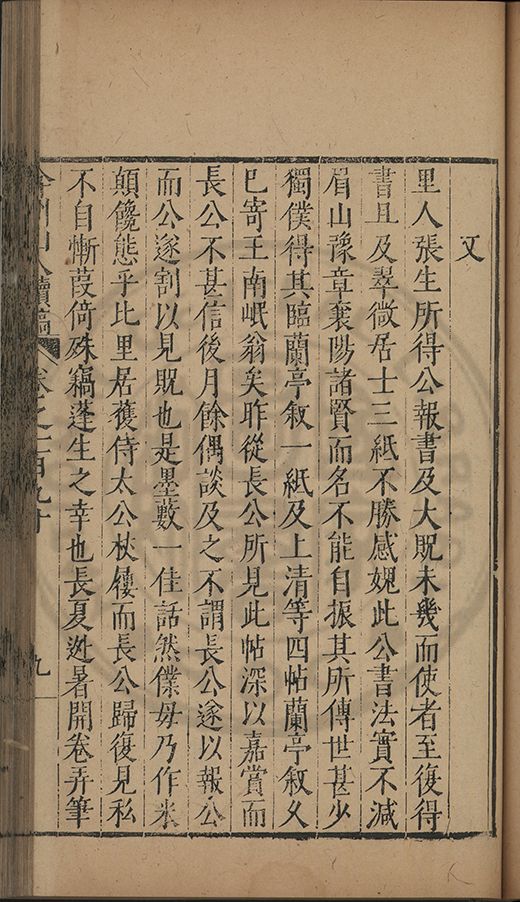 又
里人張生所得公報書及大貺未幾而使者至復得
書且及翠微居士三紙不勝感媿此公書法實不減
眉山豫章襄陽諸賢而名不能自振其所傳世甚少
獨僕得其臨蘭亭敘一紙及上清等四帖蘭亭敘久
已寄王南岷翁矣昨從長公所見此帖深以嘉賞而
長公不甚信後月餘偶談及之不謂長公遂以報公
而公遂割以見貺也是墨藪一佳話然僕毋乃作米
顛饞態乎比里居獲侍太公杖屨而長公歸復見私
不自慚葭倚殊竊蓬生之幸也長夏逃暑開卷弄筆
山人續稿 卷之一百九十 九